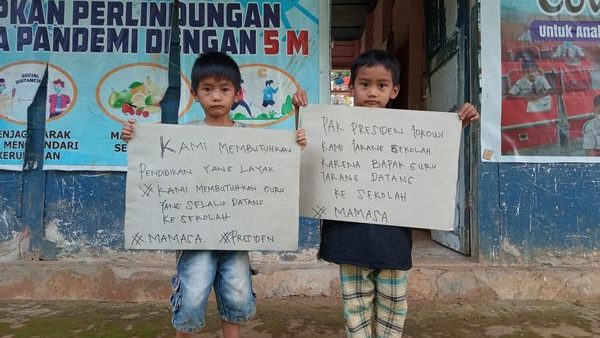 APKAN PERLINDUNGAN
A PANDEMI DENGAN 5 M
SOCIAL
DISTANCING
JAGA JARAK
MENGHINDARI
KERUMUNAN
Untuk Anak
KAMI MEMBUTUHKAN
PENDIDIKAN YANG LAYAK
# KAMI MEMBUTUHKAN GURU
YANG SELALU DATANG
KE SEKOLAH
# MAMASA. # PRESIDEN
PAK PRESIDEN JOKOWI
KAMI JARANG SEKOLAH
KARENA BAPAK GURU
JARANG DATANG
KE SEKOLAH
# MAMASA